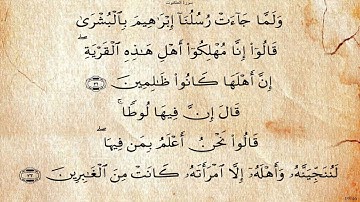 سورة العنكبوت
وَلَمَّا جَآءَتْ رُسُلُنَآ إِبْرَٰهِيمَ بِٱلْبُشْرَىٰ
قَالُوٓا۟ إِنَّا مُهْلِكُوٓا۟ أَهْلِ هَٰذِهِ ٱلْقَرْيَةِ ۖ
إِنَّ أَهْلَهَا كَانُوا۟ ظَٰلِمِينَ ٣١
قَالَ إِنَّ فِيهَا لُوطًا ۚ
قَالُوا۟ نَحْنُ أَعْلَمُ بِمَن فِيهَا ۖ
لَنُنَجِّيَنَّهُۥ وَأَهْلَهُۥٓ إِلَّا ٱمْرَأَتَهُۥ كَانَتْ مِنَ ٱلْغَٰبِرِينَ ٣٢